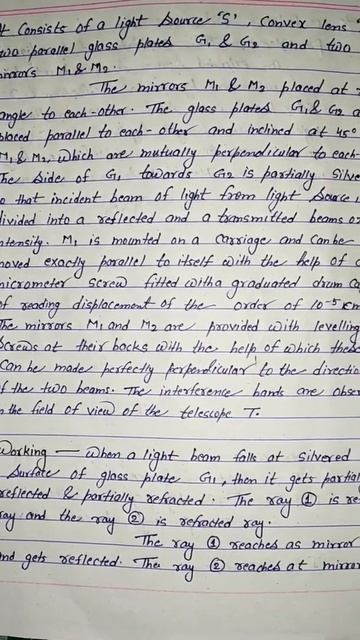 It consists of a light source 'S', convex lens
two parallel glass plates G1 & G2 and two
mirrors M1 & M2.
The mirrors M1 & M2 placed at
angle to each-other. The glass plates G1 & G2 a
placed parallel to each-other and inclined at 45°
M1 & M2, which are mutually perpendicular to each-
The side of G1 towards G2 is partially silve
o that incident beam of light from light source i
divided into a reflected and a transmitted beams of
ntensity. M1 is mounted on a carriage and can be
moved exactly parallel to itself with the help of a
micrometer screw fitted with a graduated drum ca
of reading displacement of the order of 10-5 cm
The mirrors M1 and M2 are provided with levelling
Screws at their backs with the help of which these
Can be made perfectly perpendicular to the directio
f the two beams. The interference bands are obser
n the field of view of the telescope T.
Working — When a light beam falls at silvered
Surface of glass plate G1, then it gets partial
reflected & partially refracted. The ray ① is re
ray and the ray ② is refracted ray.
The ray ① reaches as mirror
nd gets reflected. The ray ② reaches at mirror